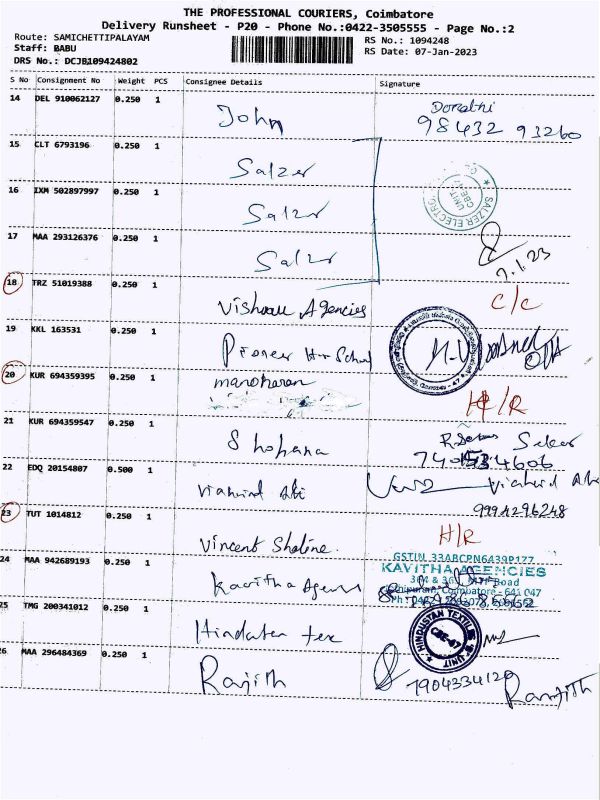 THE PROFESSIONAL COURIERS, Coimbatore
Delivery Runsheet - P20 - Phone No.:0422-3505555 - Page No.:2
Route: SAMICHETTIPALAYAM
RS No.: 1094248
Staff: BABU
RS Date: 07-Jan-2023
DRS No.: DCJB109424802
S No Consignment No Weight PCS Consignee Details Signature
14 DEL 910062127 0.250 1 John Dorathi
98432 93260
15 CLT 6793196 0.250 1 Salzer
16 IXM 502897997 0.250 1 Salzer
SALZER ELECTRO
UNIT
CBE
17 MAA 293126376 0.250 1 Salzer
7.1.23
18 TRZ 51019388 0.250 1 Agencies C/C
19 KKL 163531 0.250 1 Pioneer Hr School
20 KUR 694359395 0.250 1 manoharan H/R
21 KUR 694359547 0.250 1 Shohana
22 EDQ 20154807 0.500 1
9994296248
23 TUT 1014812 0.250 1 Vincent Sholine. H/R
GSTIN 33ABCPN6439P1Z7
KAVITHA AGENCIES
Road
Coimbatore - 641 047
24 MAA 942689193 0.250 1 Kavitha Agencies
25 TMG 200341012 0.250 1 Hindustan tex
HINDUSTAN TEXTILES 'B' UNIT
CBE-47
26 MAA 296484369 0.250 1 Ranjith
7904334120 Ranjith